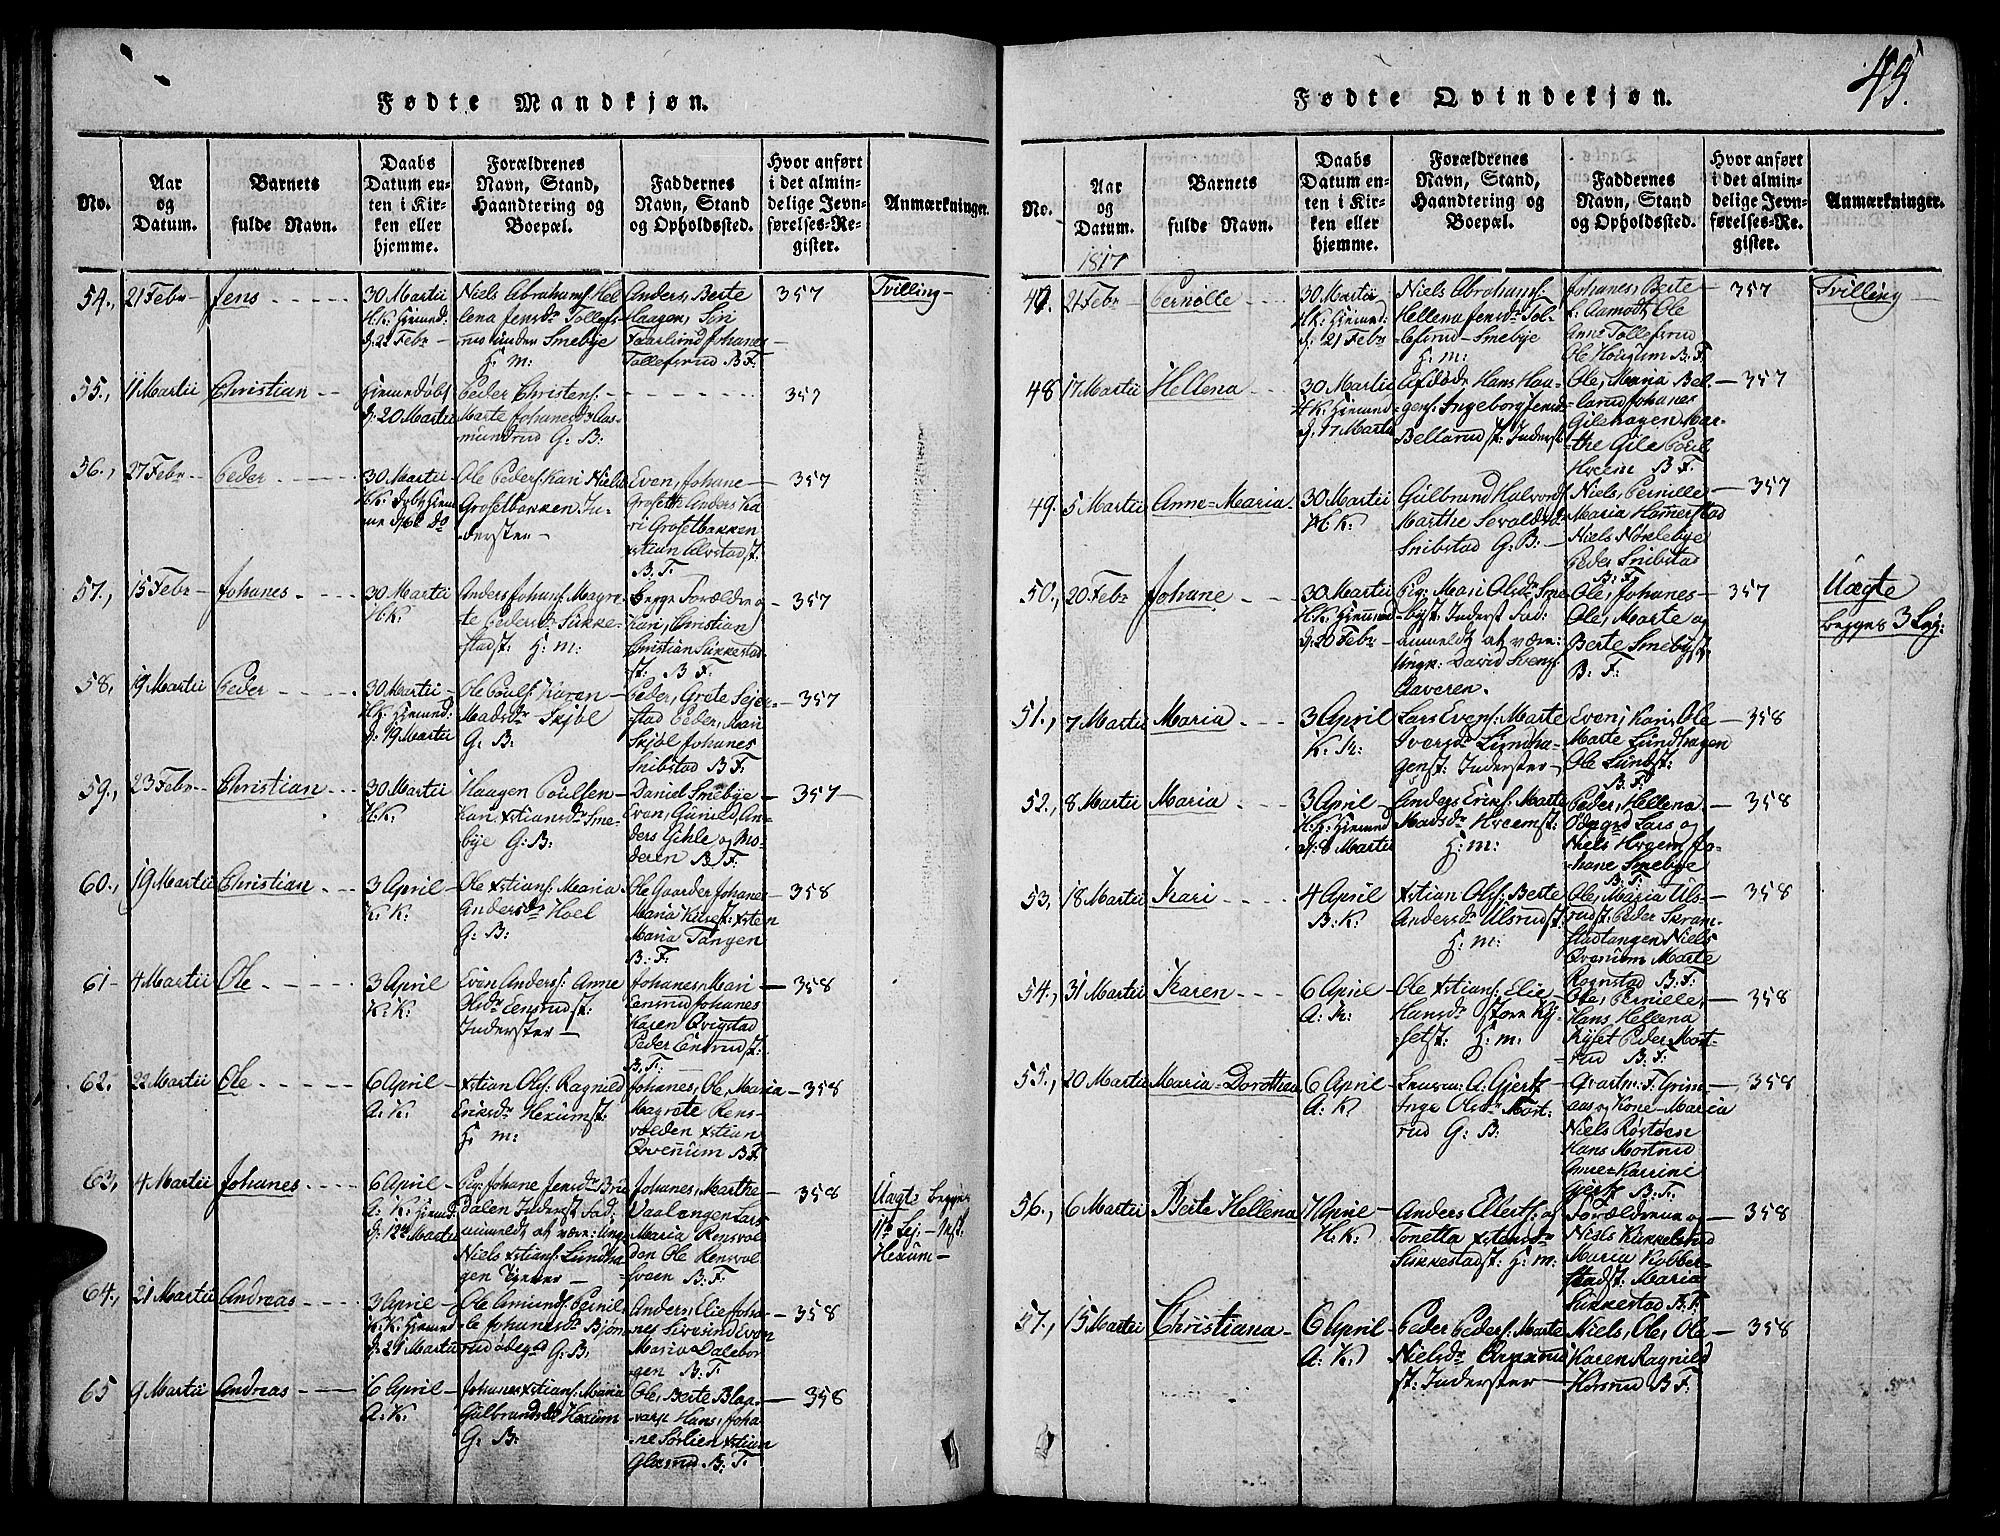 49.
Fødte Mandkjøn.
No.
Aar
og
Datum.
Barnets
fulde Navn.
Daabs
Datum en-
ten i Kir-
ken eller
hjemme.
Forældrenes
Navn, Stand,
Haandtering og
Boepæl.
Faddernes
Navn, Stand
og Opholdssted.
Hvor anført
i det almin-
delige Jevn-
førelses-Re-
gister.
Anmærkninger.
54., 21 Febr Jens
30 Martii
H.K. hjemed:
d: 22 Febr
Niels Abrahams: Hel-
lena Jensdr Tollefs-
rud under Smebye
H: m:
Anders, Berte
Haagen, Siri
Faarlund Johanes
Tollefsrud B F:
357
Tvilling
55., 11 Martii Christian
hjemedøbt
d: 20 Martii
Peder Christens:
Marte Johanesdr Aas-
mundrud G: B:
357
56., 27 Febr Peder
30 Martii
H.K.
Ole Peders: Kari Niels
Grosetbakken In-
derster
Even, Johane
Groseth Anders Ka-
ri Grosetbakken
xstian Alvstad st:
B. F:
357
57., 15 Febr Johanes
30 Martii
H.K.
Anders Johans: Magre-
te Pedersdr Sukke-
stadst: H: m:
begge Forældre og
Kari, Christian
Christian Sukkestad-
st: B F:
357
58, 19 Martii Peder
30 Martii
H.K. hjemed:
d: 19 Martii
Ole Pouls: Karen
Madsdr Skjøl
G: B:
Peder, Grete Sejer-
stad Peder, Mari
Skjøl Johanes
Snibstad B F:
357
59., 23 Febr Christian
30 Martii
H.K.
Haagen Poulsen
Kari xstiansdr Sme-
bye G: B:
Daniel Smebye
Even, Gunild, An-
ders Gihle og Mo-
deren B: F:
357
60., 19 Martii Christian
3 April
K: K:
Ole xstians: Maria
Andersdr Hoel
G: B:
Ole Gaarder Johanes
Maria xsten
Maria Tangen
B: F:
358
61 4 Martii Ole
3 April
K: K:
Even Anders: Anne
Olsdr Eensrud st:
Inderster
Johanes, Mari
Eensrud Johanes
Karen Qvigstad
Peder Eensrud st:
B: F:
358
62. 22 Martii Ole
6 April
A: K:
xstian Ols: Ragnild
Eriksdr Hexumst:
H: m:
Johanes, Ole, Maria
Magrete Rens-
volden xstian
Qvenum B F:
358
63, 4 Martii Johanes
6 April
A: K: hjemed
d: 12te Martii
Pig: Johane Jensdr Bru-
dalen Inderst Fad:
anmeldt at være: Ungk
Niels xstians: Lundha-
gen Tjener
Johanes, Marthe
Daalangen Lars
Maria Rensvol-
den Ole Rensvol-
sveen B: F:
358
Uægte begges
1te Lej: Mst:
Hexum
64., 21 Martii Andreas
3 April
K.K. hjemed
d: 21 Martii
Ole Amunds: Pernil-
le Johanesdr Bjørn-
rudødegd G: B:
Anders, Elie Joha-
nes Sivesind Even
Maria Dalebor-
gen B: F:
358
65 9 Martii Andreas
6 April
A: K:
Johanes xstians: Maria
Gulbrandsdr Hexum
G: B:
Ole, Berte Blaa-
varp Hans, Joha-
ne Sørlien xstian
Glæsrud B: F:
358
Fødte Qvindekjøn.
No.
Aar
og
Datum.
1817
Barnets
fulde Navn.
Daabs
Datum en-
ten i Kir-
ken eller
hjemme.
Forældrenes
Navn, Stand,
Haandtering og
Boepæl.
Faddernes
Navn, Stand
og Opholdssted.
Hvor anført
i det almin-
delige Jevn-
førelses-Re-
gister.
Anmærkninger.
47. 21 Febr Pernille
30 Martii
H.K: hjemed:
d: 21 Febr
Niels Abrahams:
Hellena Jensdr Tol-
lefsrud Smebye
H: m:
Johanes, Berte
Aamodt, Ole
Anne Tollefsrud
Ole Hoxsum B. F.
357
Tvilling
48 17 Martii Hellena
30 Martii
H.K. hjemed
d: 17 Martii
Afdøde Hans Haa-
gens: Ingeborg Jensdr
Bellerud st: Inderst
Ole, Maria Bel-
lerud Johanes
Gilehagen Mar-
the Gile Poul
Hveem B F:
357
49. 5 Martii Anne=Maria
30 Martii
H.K.
Gulbrand Halvors:
Marthe Sevaldsdr
Snibstad G: B:
Niels, Pernille
Maria Hamerstad
Niels Nøklebye
Peder Snibstad
B: F:
357
50., 20 Febr Johane
30 Martii
H.K. hjemed
d: 20 Febr
Pig: Mari Olsdr Sme-
byst Inderst Fad:
anmeldt at være:
Ungk: David Svens:
Qaveren.
Ole, Johanes
Ole, Marte og
Berte Smebyst
B: F:
357
Uægte
begges 3 Lej:
51., 7 Martii Maria
3 April
K. K:
Lars Evens: Marte
Iversdr Lundha-
genst: Inderster
Even, Kari, Ole
Marte Lundhagen
Ole Lundst:
B: F:
358
52., 8 Martii Maria
3 April
H.K: hjemed
d: 8 Martii
Anders Eriks: Marte
Madsdr Hveemst:
H: m:
Peder, Hellena
Odegrd Lars og
Niels Hveem Jo-
hane Smebye
B: F:
358
53., 18 Martii Kari
4 April
B: K.
xstian Ols: Berte
Andersdr Ulsrud st:
H: m:
Ole, Maria Uls-
rudst: Peder Skram-
stadtangen Niels
Qvenum Marte
Rognstad B: F:
358
54., 31 Martii Karen
6 April
A: K:
Ole xstians: Elie
Hansdr Store Ky-
setst: H: m:
Ole, Pernille,
Hans Hellena
Kyset Peder Mort-
rud B: F:
358
55., 20 Martii Maria=Dorothea
6 April
A: K:
A: Gjertz
Inge Olsdr Mort-
rud G: B:
Qvartm: F: Grim-
aas og Kone Maria
Niels Røstøen
Hans Mortrud
Anne=Karrine
Gjertz B: F:
358
56., 6 Martii Berte Hellena
7 April
H.K:
Anders Ellerts: og
Tonetta xstensdr
Sukkestadst: H: m:
Forældrene og
Niels Kukkelsrud
Maria Kobber-
stadst: Maria
Sukkestad B: F:
358
57., 15 Martii Christiana
6 April
A: K:
Peder Peders: Marte
Nielsdr Qvenum
st: Inderster
Niels, Ole, Ole
Karen Ragnild
B F:
358